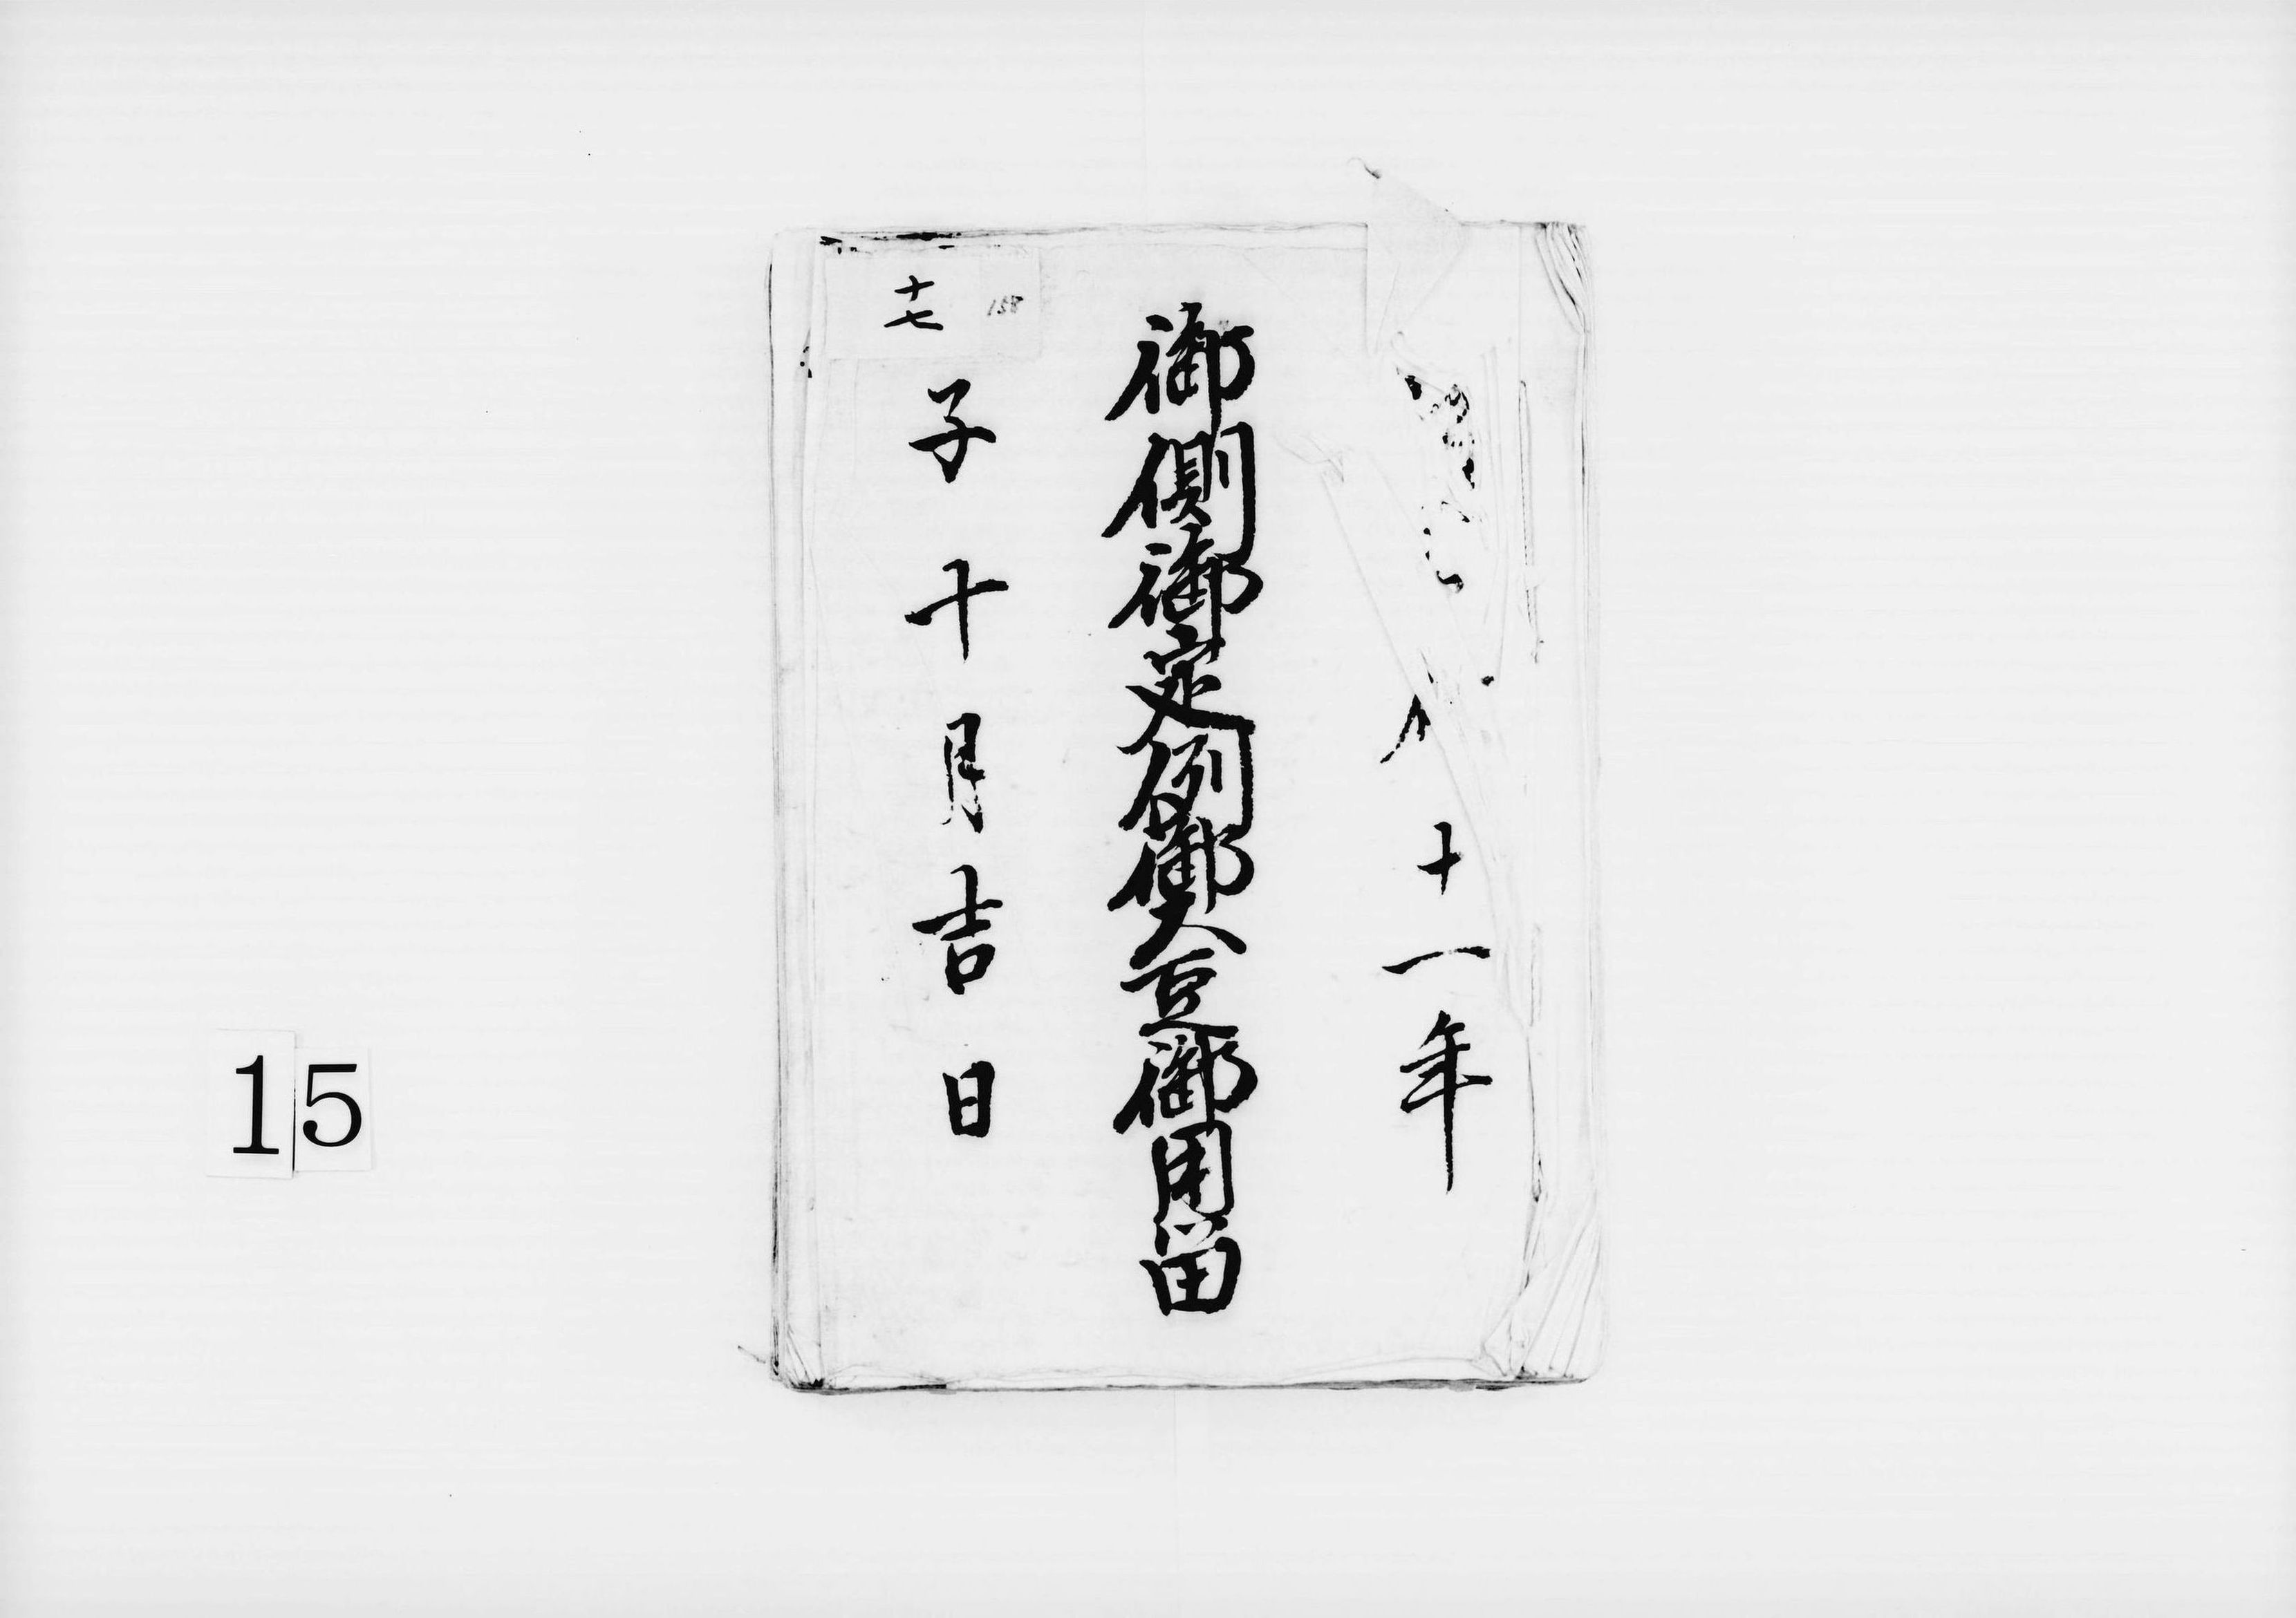 十一年
御側御定例御大豆御用留
子十月吉日
十七
158
15